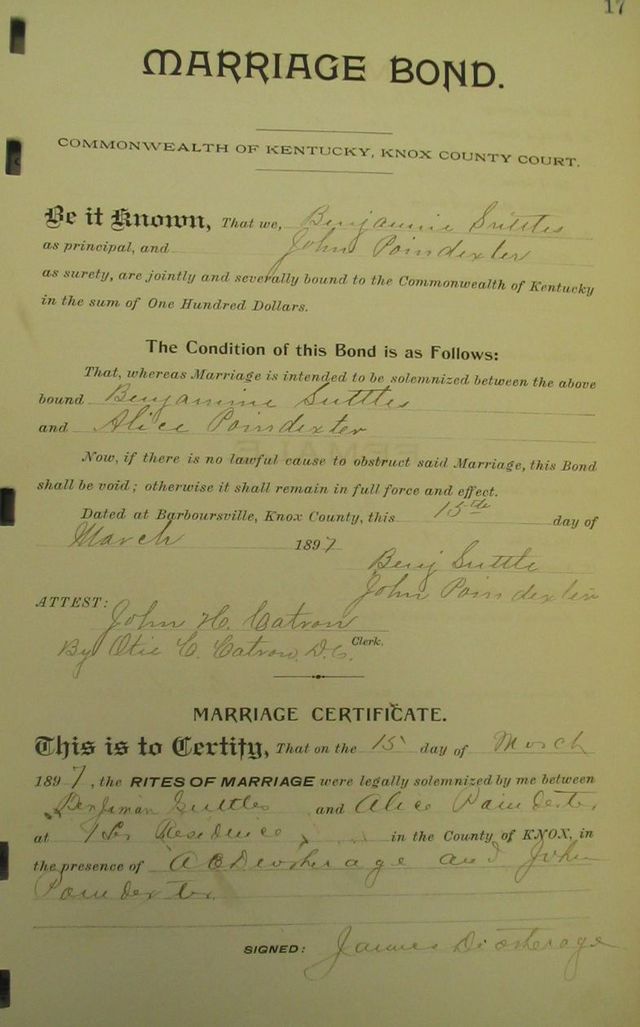 17
MARRIAGE BOND.
COMMONWEALTH OF KENTUCKY, KNOX COUNTY COURT.
Be it Known, That we, Benjamine Suttles
as principal, and John Poindexter
as surety, are jointly and severally bound to the Commonwealth of Kentucky
in the sum of One Hundred Dollars.
The Condition of this Bond is as Follows:
That, whereas Marriage is intended to be solemnized between the above
bound Benjamine Suttles
and Alice Poindexter
Now, if there is no lawful cause to obstruct said Marriage, this Bond
shall be void; otherwise it shall remain in full force and effect.
Dated at Barboursville, Knox County, this 15th day of
March 1897
Benj Suttle
John Poindexter
ATTEST:
John H. Catron
By Otie C. Catron, D.C. Clerk.
MARRIAGE CERTIFICATE.
This is to Certify, That on the 15 day of March
1897, the RITES OF MARRIAGE were legally solemnized by me between
Benjaman Suttles and Alice Poindexter
at Residence in the County of KNOX, in
the presence of and John
Poindexter
SIGNED: James